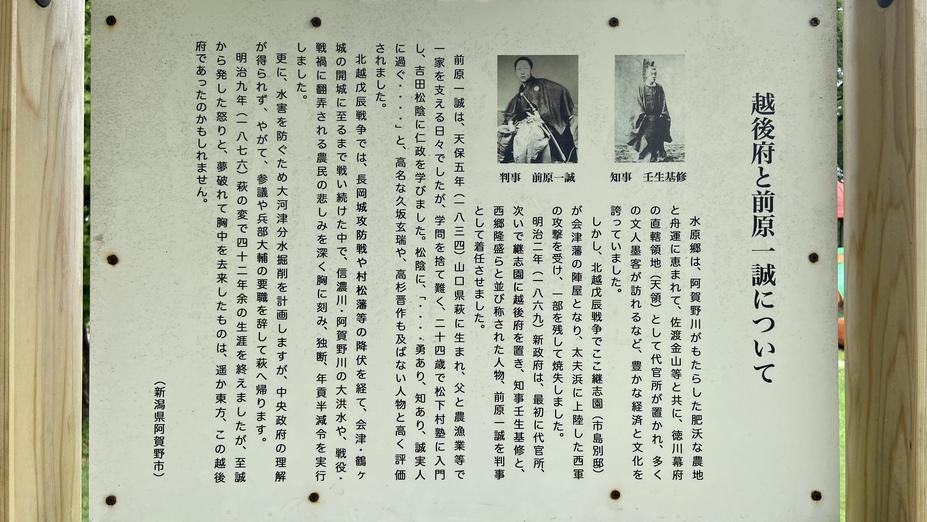 越後府と前原一誠について
知事　壬生基修
判事　前原一誠
水原郷は、阿賀野川がもたらした肥沃な農地
と舟運に恵まれて、佐渡金山等と共に、徳川幕府
の直轄領地（天領）として代官所が置かれ、多く
の文人墨客が訪れるなど、豊かな経済と文化を
誇っていました。
しかし、北越戊辰戦争でここ継志園（市島別邸）
が会津藩の陣屋となり、太夫浜に上陸した西軍
の攻撃を受け、一部を残して焼失しました。
明治二年（一八六九）新政府は、最初に代官所、
次いで継志園に越後府を置き、知事壬生基修と、
西郷隆盛らと並び称された人物、前原一誠を判事
として着任させました。
前原一誠は、天保五年（一八三四）山口県萩に生まれ、父と農漁業等で
一家を支える日々でしたが、学問を捨て難く、二十四歳で松下村塾に入門
し、吉田松陰に仁政を学びました。松陰に、「・・・・勇あり、知あり、誠実人
に過ぐ・・・・」と、高名な久坂玄瑞や、高杉晋作も及ばない人物と高く評価
されました。
北越戊辰戦争では、長岡城攻防戦や村松藩等の降伏を経て、会津・鶴ヶ
城の開城に至るまで戦い続けた中で、信濃川・阿賀野川の大洪水や、戦役・
戦禍に翻弄される農民の悲しみを深く胸に刻み、独断、年貢半減令を実行
しました。
更に、水害を防ぐため大河津分水掘削を計画しますが、中央政府の理解
が得られず、やがて、参議や兵部大輔の要職を辞して萩へ帰ります。
明治九年（一八七六）萩の変で四十二年余の生涯を終えましたが、至誠
から発した怒りと、夢破れて胸中を去来したものは、遥か東方、この越後
府であったのかもしれません。
（新潟県阿賀野市）